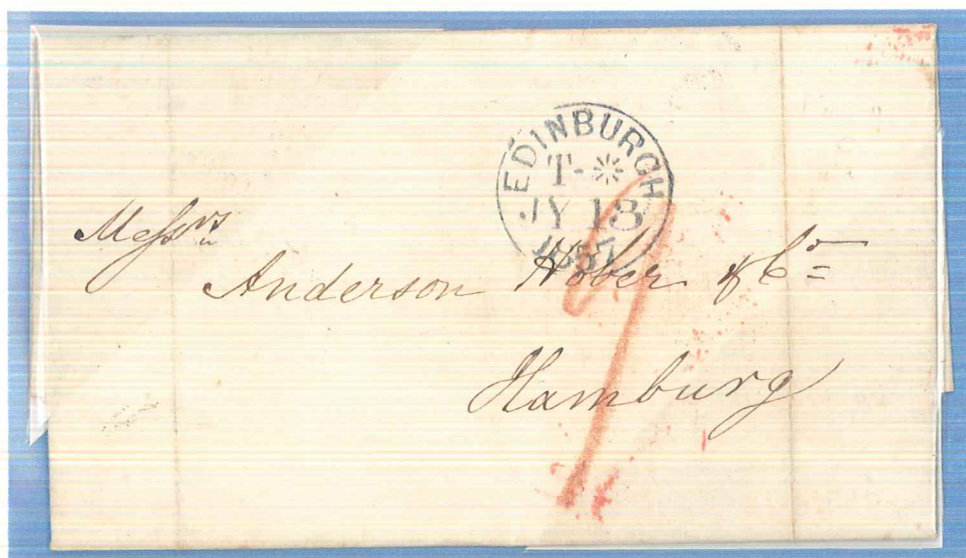 EDINBURGH
T-*
JY 18
1857
Messrs
Anderson Höber & Co
Hamburg